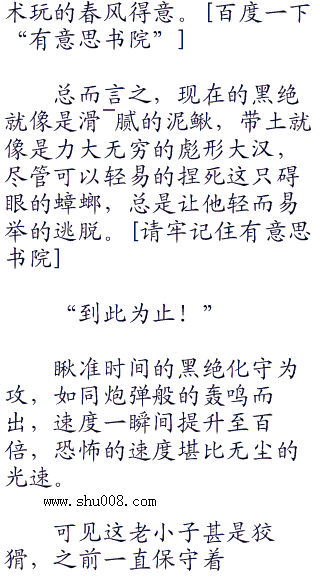 术玩的春风得意。[百度一下
“有意思书院”]
总而言之，现在的黑绝
就像是滑¯腻的泥鳅，带土就
像是力大无穷的彪形大汉，
尽管可以轻易的捏死这只碍
眼的蟑螂，总是让他轻而易
举的逃脱。[请牢记住有意思
书院]
“到此为止！”
瞅准时间的黑绝化守为
攻，如同炮弹般的轰鸣而
出，速度一瞬间提升至百
倍，恐怖的速度堪比无尘的
光速。
www.shu008.com
可见这老小子甚是狡
猾，之前一直保守着